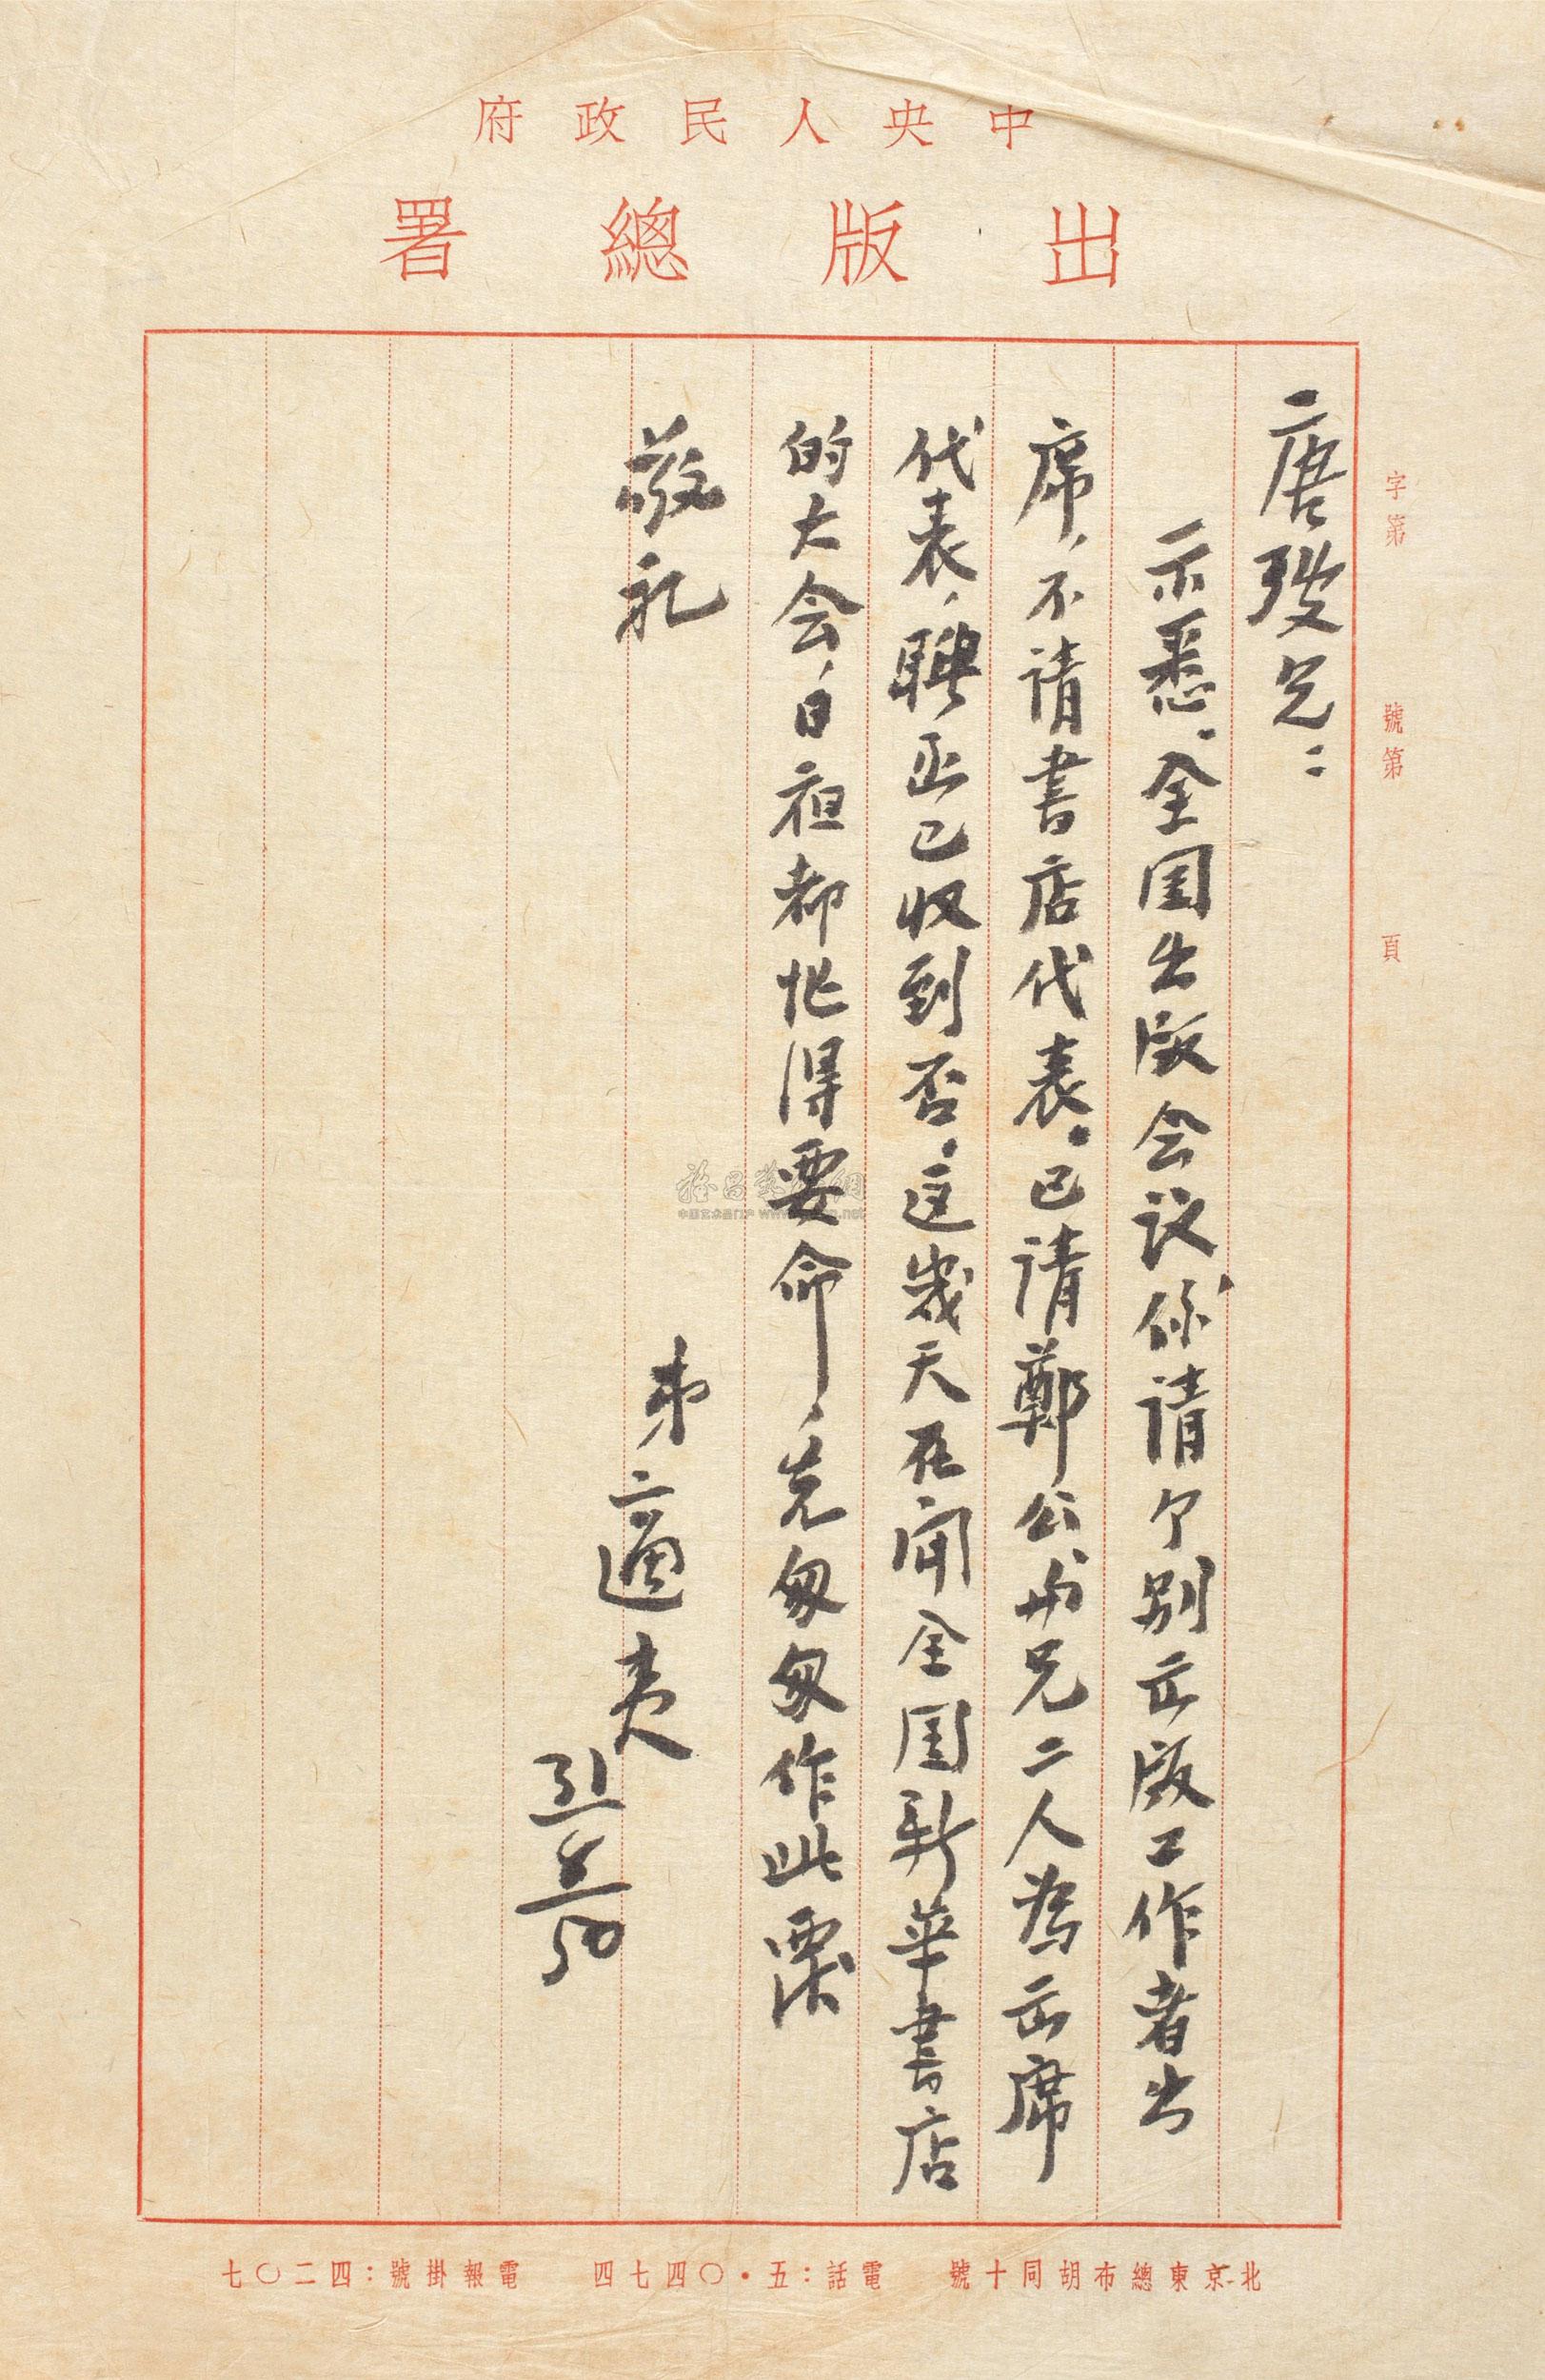 中央人民政府
出版總署
字第　號第　頁
唐弢兄：
示悉。全国出版会议，係请个别出版工作者出
席，不请書店代表。已请鄭公与兄二人為出席
代表，聘函已收到否。这幾天在闹全国新華書店
的大会，日夜都忙得要命，先匆匆作此覆
敬礼
弟適夷
31/8 50
北京東總布胡同十號　電話：五·〇四七四　電報掛號：四二〇七